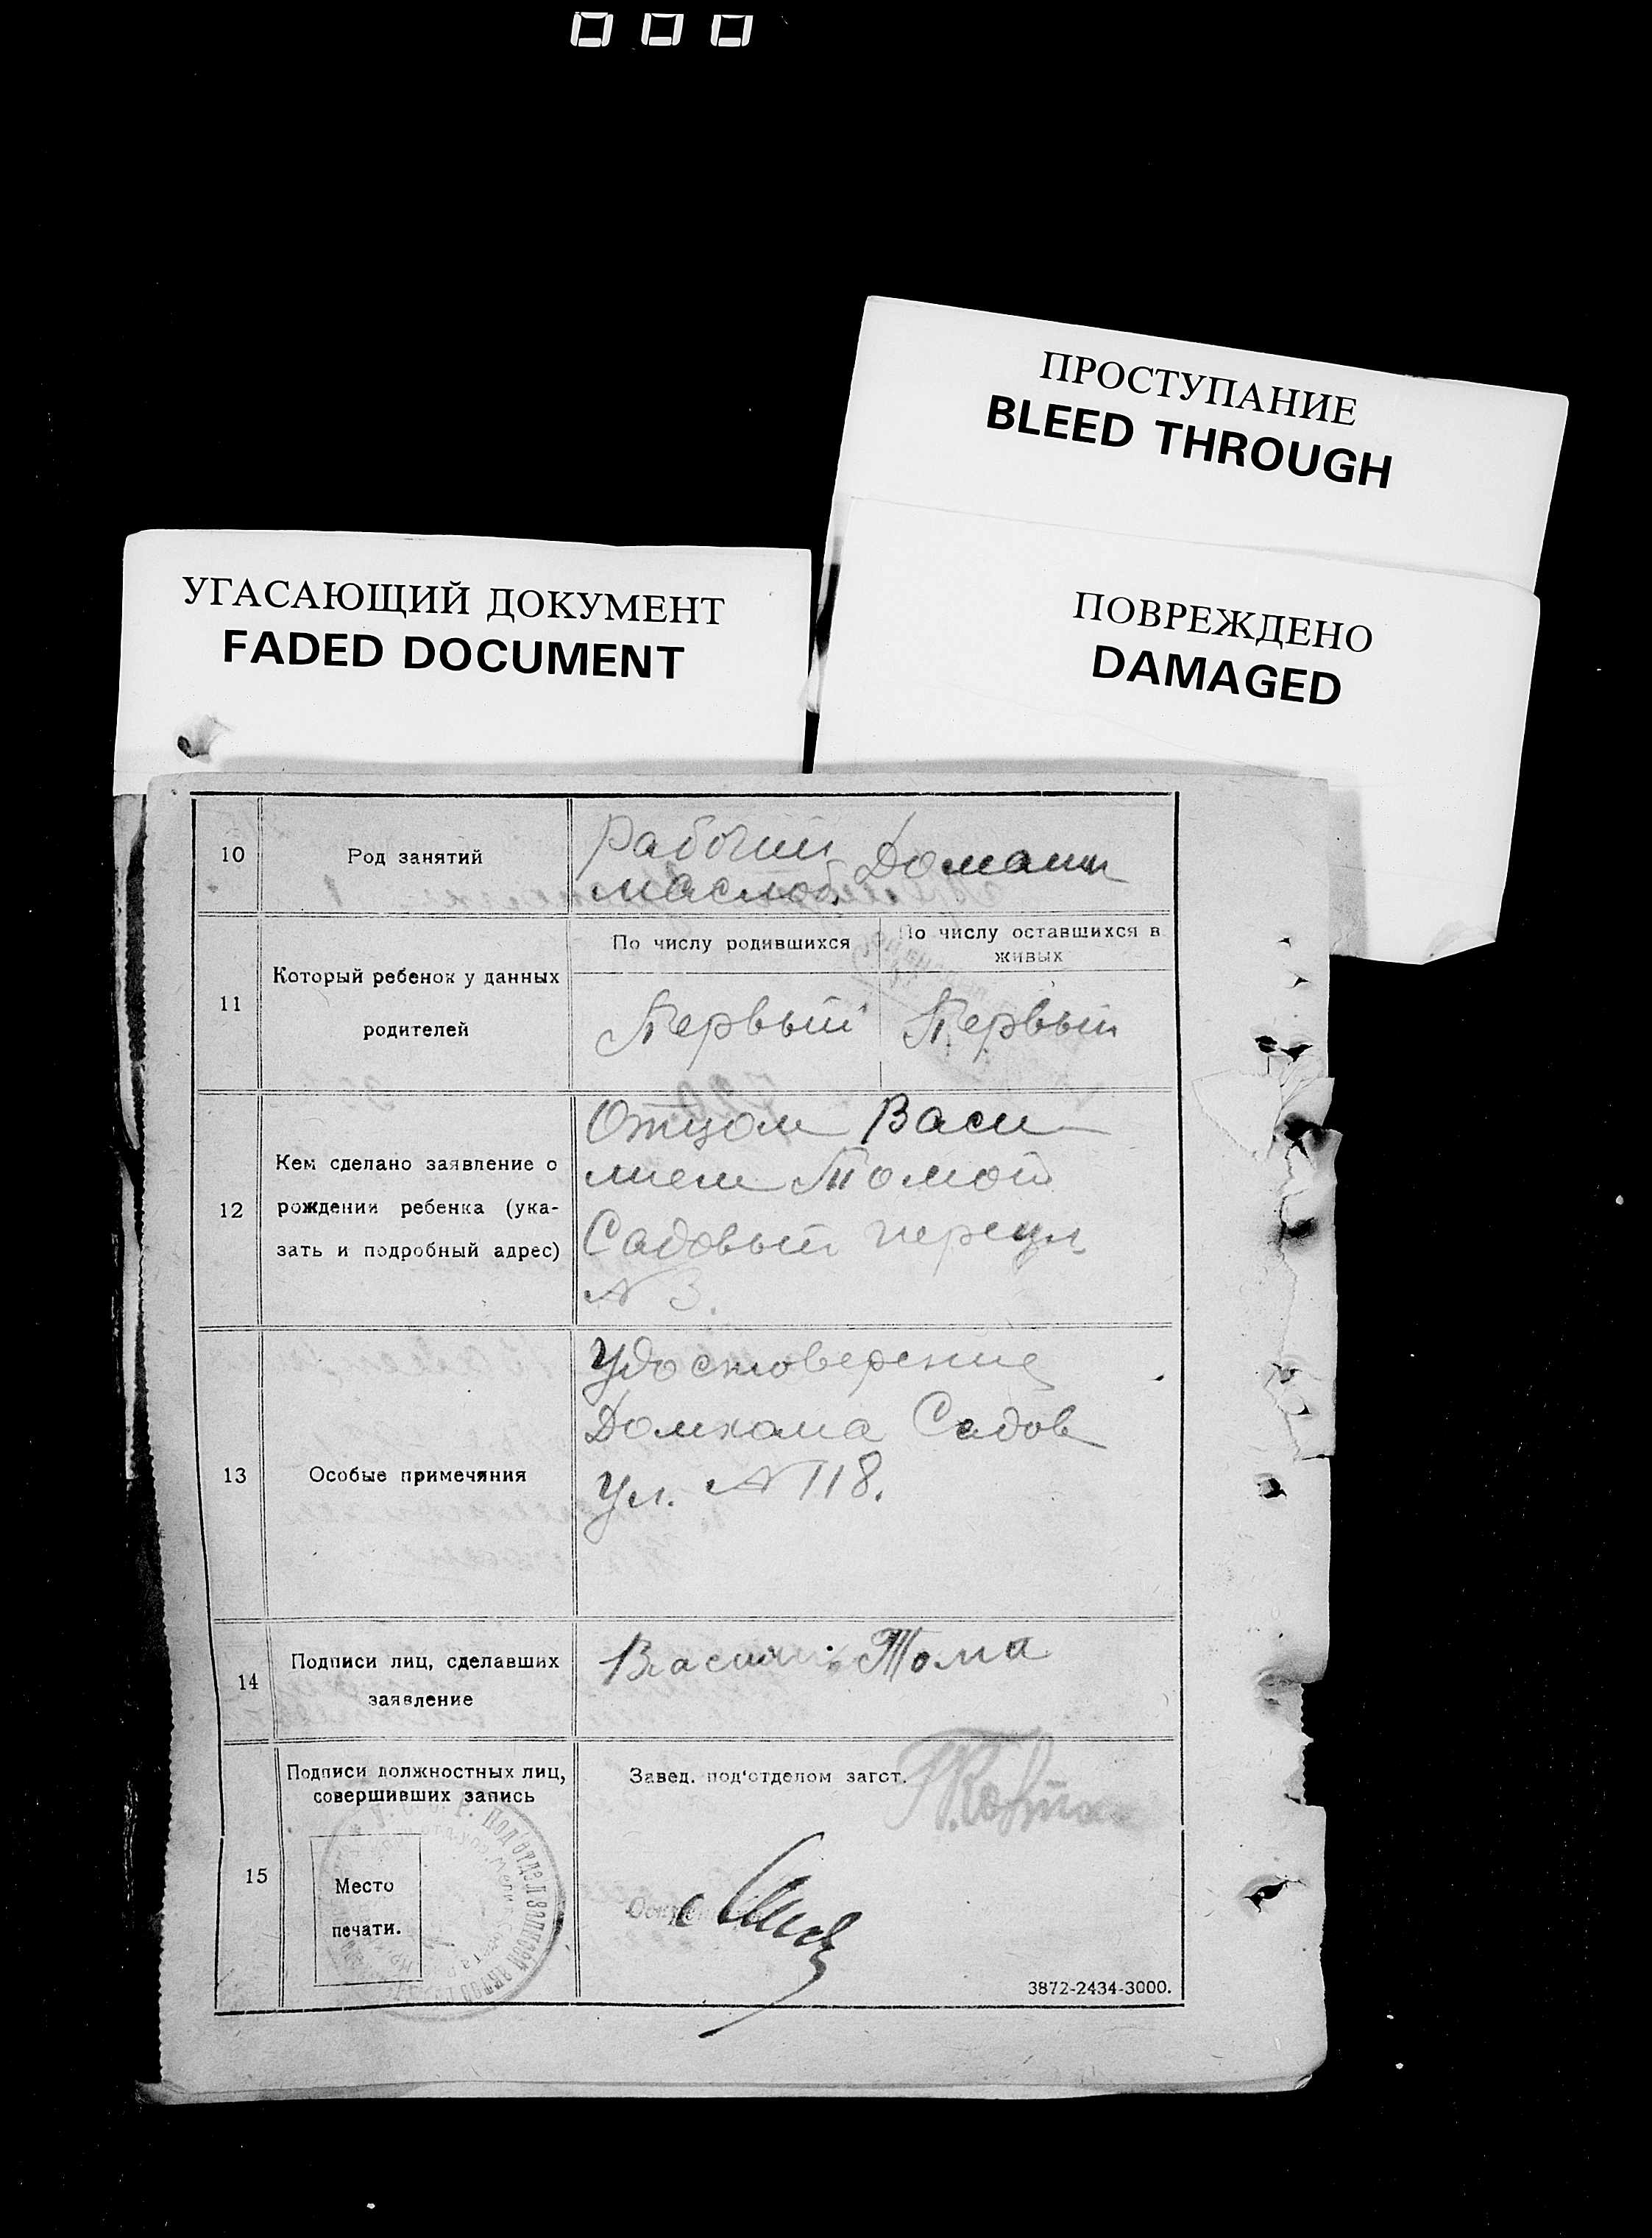 ПРОСТУПАНИЕ
BLEED THROUGH
УГАСАЮЩИЙ ДОКУМЕНТ
FADED DOCUMENT
ПОВРЕЖДЕНО
DAMAGED
10
Род занятий
Рабочий
маслоб.
Домашн
11
Который ребенок у данных
родителей
По числу родившихся
По числу оставшихся в
живых
Первый
Первый
12
Кем сделано заявление о
рождении ребенка (ука-
зать и подробный адрес)
Отцом Васи
лием Томой
Садовый переул
№ 3.
13
Особые примечяния
Удостоверение
Домкома Садов
ул. № 118.
14
Подписи лиц, сделавших
заявление
Василий Тома
15
Подписи должностных лиц,
совершивших запись
Место
печати.
Завед. под'отделом загст.
3872-2434-3000.